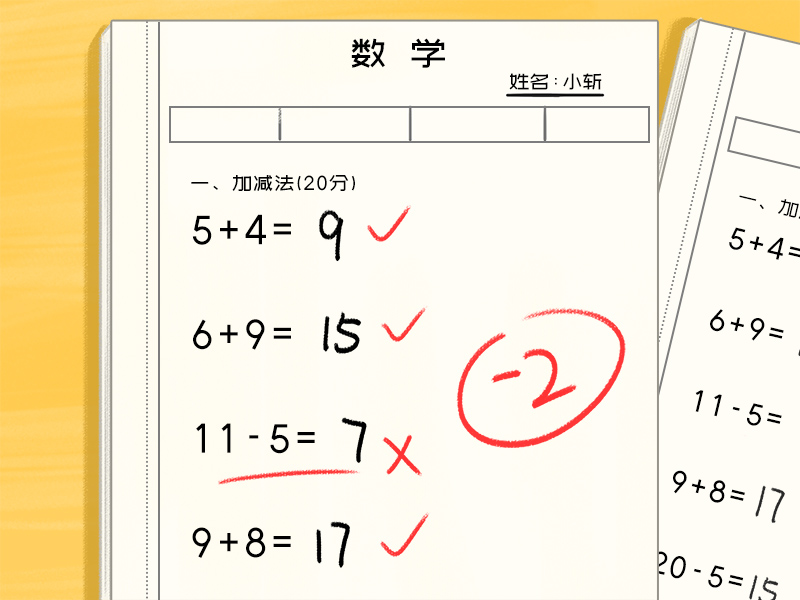 数 学
姓名:小斩
一、加减法(20分)
5+4= 9 ✓
6+9= 15 ✓
11-5= 7 ✗
-2
9+8= 17 ✓
一、加
5+4=
6+9=
11-5=
9+8= 17
20-5=15